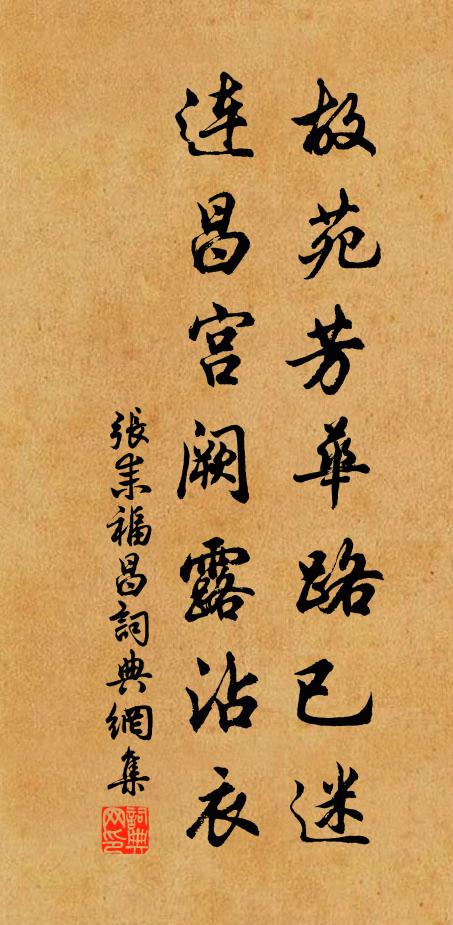 故苑芳華路已迷
連昌宮闕露沾衣
張耒福昌詞典網集
詞典网印